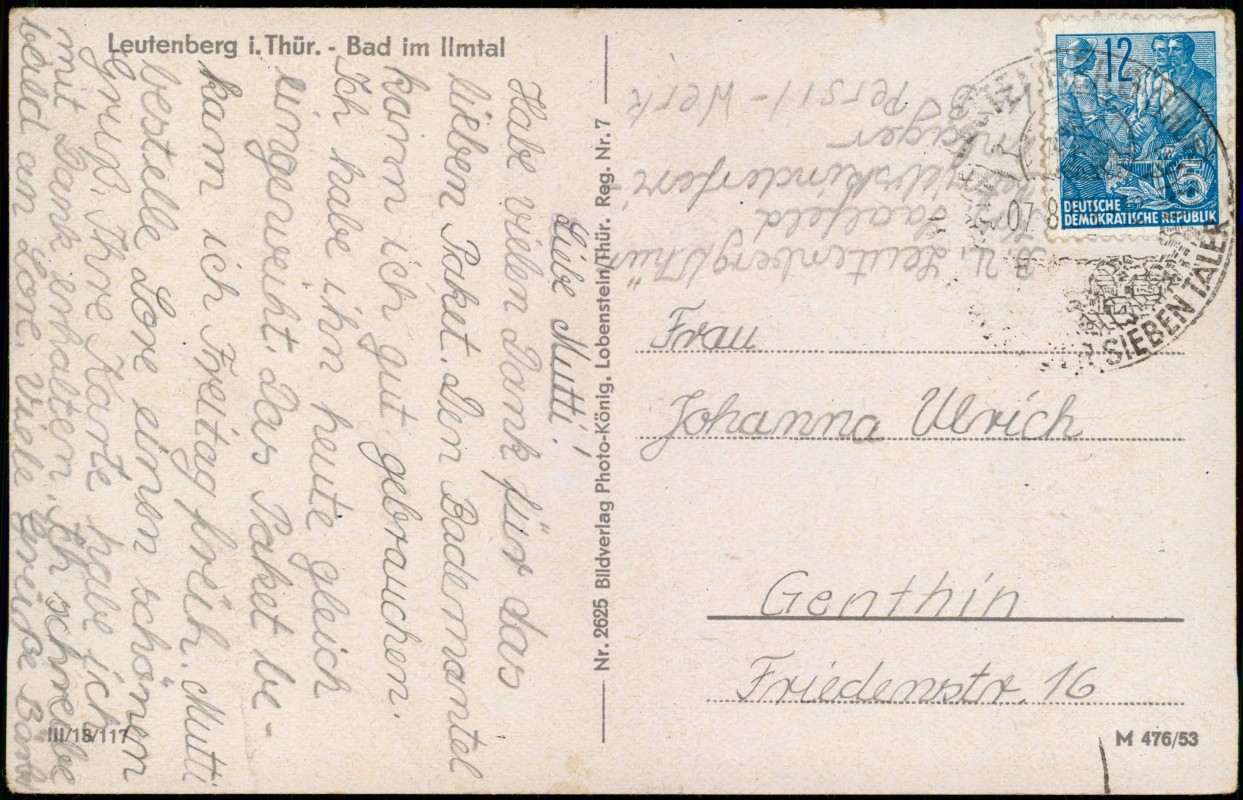 Leutenberg i. Thür. - Bad im Ilmtal
Liebe Mutti!
Habe vielen Dank für das
lieben Paket. Den Bademantel
kann ich gut gebrauchen.
Ich habe ihn heute gleich
eingeweiht. Das Paket be-
kam ich Freitag früh. Mutti
bestelle Lore einen schönen
Gruß. Ihre Karte habe ich
mit Dank erhalten. Ich schreibe
bald an Lore. Viele Grüße Bärb
III/18/117
Nr. 2625 Bildverlag Photo-König, Lobenstein/Thür. Reg. Nr. 7
Persil-Werk
B
lager
kinderferi
Saalfeld
Leutenberg/Thür
12
5
DEUTSCHE
DEMOKRATISCHE REPUBLIK
07.8
SIEBEN TÄLER
Frau
Johanna Ulrich
Genthin
Friedenstr. 16
M 476/53